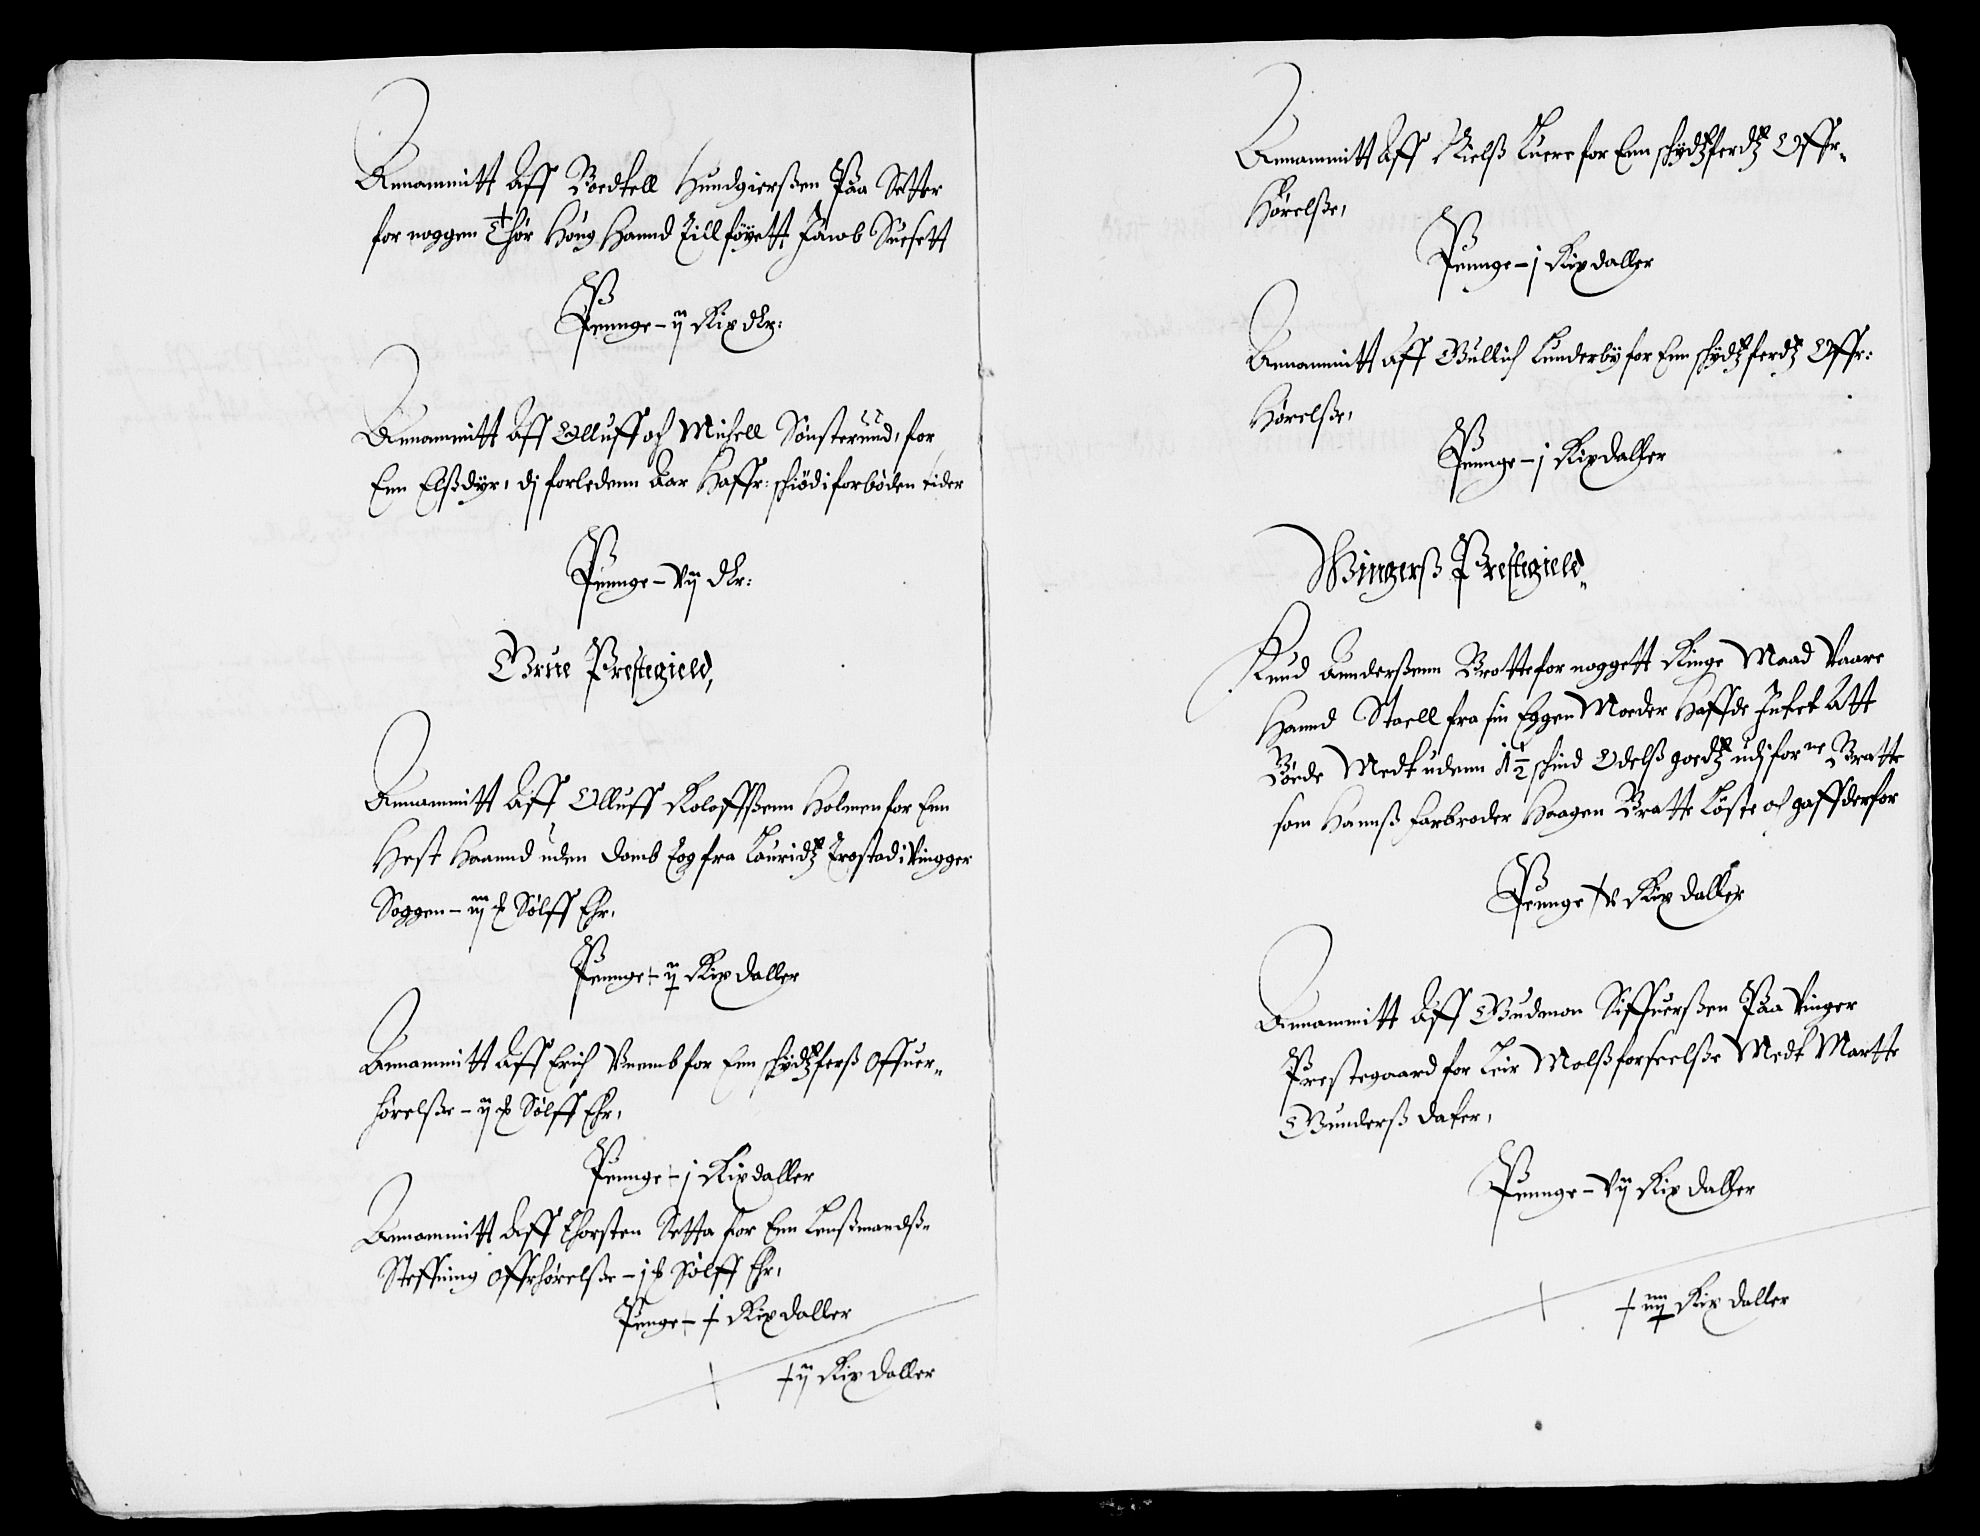 Annammitt Aff Bodkell Hundgierßen Paa Setter
for noggen Thør Hong Hannd Till føyett Jacob Suesett
Penge – ij Rix dlr:
Annammitt Aff Olluff och Michell Sønsteruud, for
Enn Elßdyr, dj forledenn Aar Haffr: schiød i forbøden tider
Penge – vij dlr:
Grue Prestegield,
Annammitt Aff Olluff Roloffßenn Holmen for Enn
Hest Haannd uden Domb tog fra Lauridtz Trostad i Vingger
Soggen – iij Sølff Ehr,
Penge – ij Rix daller
Annammitt Aff Erich Vnemb for Enn schydtzferß Offuer-
hørelße – ij Sølff Ehr,
Penge – j Rixdaller
Annammitt Aff Thorsten Setta for Enn Lensmandß-
Steffning Offrhørelße – j Sølff Ehr,
Penge – Rix daller
Rix daller
Annammitt Aff Nielß Luere for Enn schydtzferdtz Offr-
Hørelße,
Penge – j Rixdaller
Annammitt Aff Gullich Lunderby for Enn schydtzferdtz Offr:
Hørelße,
Penge – j Rixdaller
Wingerß Prestegield,
Knud Aunderßenn Brotte for noggett Ringe Maad Vaare
Hannd Staell fra sin Eggen Moeder Haffde Intet Att
Bøede Medt udenn 1½ schind Odelß goedtz udj forne Bratte
som Hannß farbroder Haagen Bratte Løste och gaff derfor
Penge Rix daller
Annammitt Aff Gudmon Siffuerßen Paa Vinger
Prestegaard for Leir Molßforseelße Medt Martte
Gunderß dater,
Penge – vij Rix daller
Rix daller